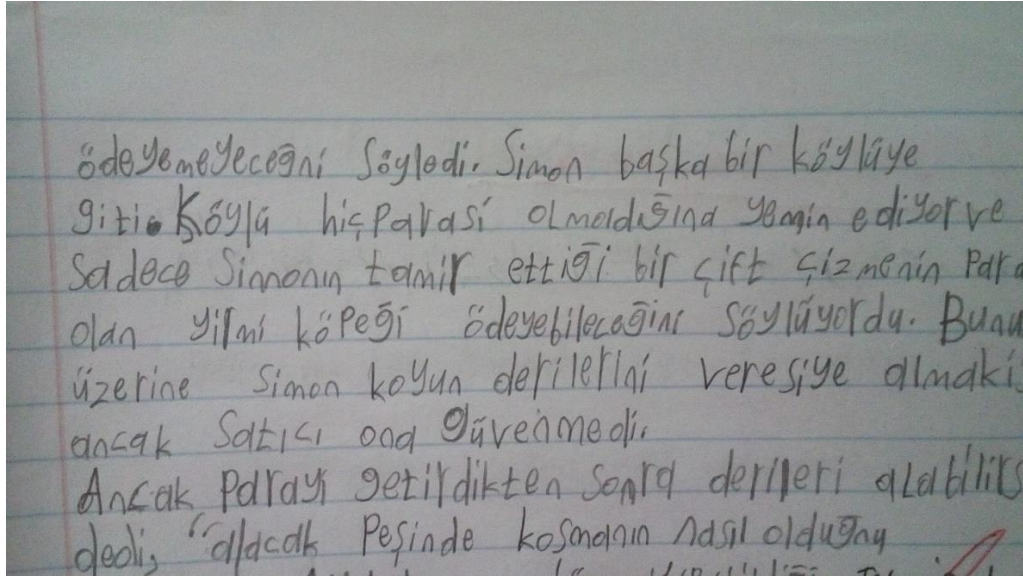 ödeyemeyeceğni söyledi. Simon başka bir köylüye
giti. Köylü hiç parasi olmadığına yemin ediyor ve
sadece Simonın tamir ettiği bir çift çizmenin para
olan yirmi köpeği ödeyebileceğini söylüyordu. Bunu
üzerine Simon koyun derilerini veresiye almak i
ancak satıcı ona güvenmedi.
Ancak parayı getirdikten sonra derileri alabilirs
dedi, "alacak peşinde koşmanın nasıl olduğnu